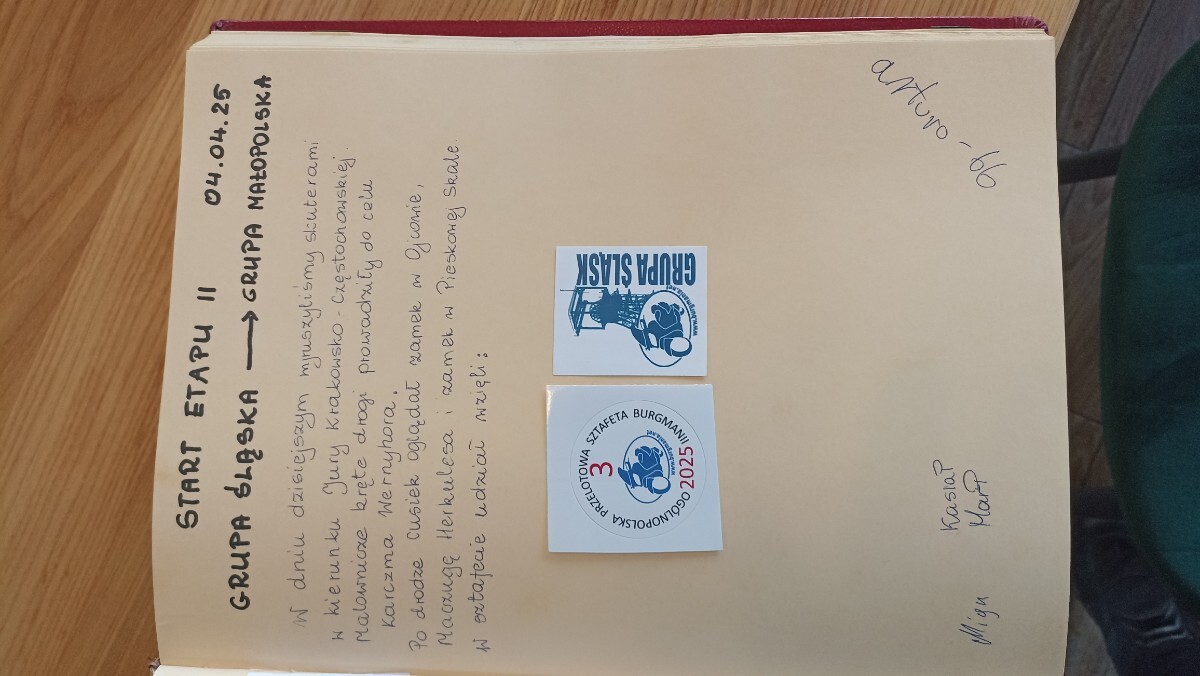 START ETAPU II 04.04.25
GRUPA ŚLĄSKA → GRUPA MAŁOPOLSKA
W dniu dzisiejszym wyruszyliśmy skuterami
w kierunku Jury Krakowsko-Częstochowskiej.
Malownicze kręte drogi prowadziły do celu
Karczma Wernyhora.
Po drodze Cusiek oglądał zamek w Ojcowie,
Maczugę Herkulesa i zamek w Pieskowej Skale
W sztafecie udział wzięli:
3 OGÓLNOPOLSKA PRZELOTOWA SZTAFETA BURGMANII
www.burgmania.net
2025
GRUPA ŚLĄSK
www.burgmania.net
arturo-
KasiaP
MarP